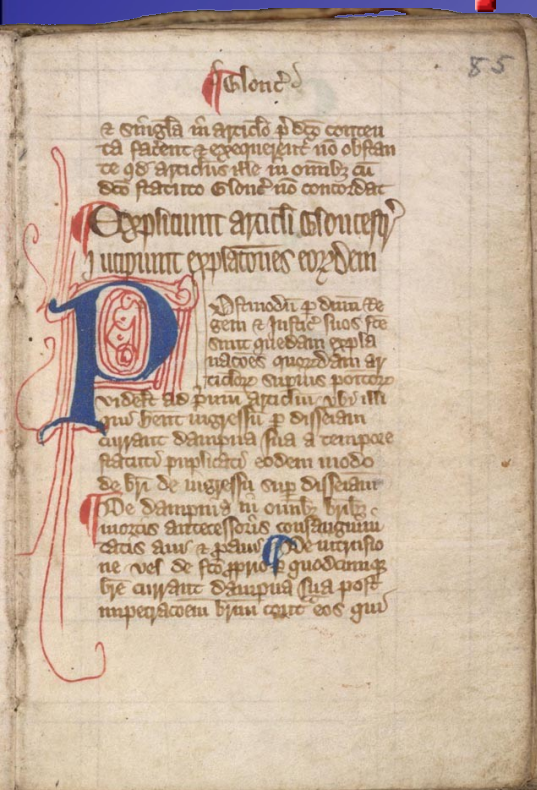 85
¶ Glouc̄
& singl̄a in articl̄o p̄dc̄o conten
ta facient & exequent̉ nō obstan
te qd̛ articl̄us ille in omīb3 cū
dc̄o statuto Glouc̄ nō concordat
¶ Expliciunt articl̄i Gloucestr̉
Incipiunt explac̄ones eorꝝdem
Postmodū ꝑ dūm Re
gem & Justic̄ suos fc̄e
sunt quedam expla
nac̄ões quorꝝdam ar
ticl̄orꝝ supius
videlt̄ ad p̉mum articl̄m vbi illi
qui hēnt ingressū ꝑ disseisam
currant dampna sua a tempore
statuti puplicati eodem modo
de br̄i de ingressu sup̄ disseisam
¶ De dampnis in omīb3 br̄ib3
mortis antecessoris consanguini
tatis aui & ꝓaui ¶ de intrusio
ne vel de fc̄o ꝓprio ꝑ quodcumqꝫ
br̄e currant dampna sua post
impetrac̄oem br̄ium cont̉ eos qui